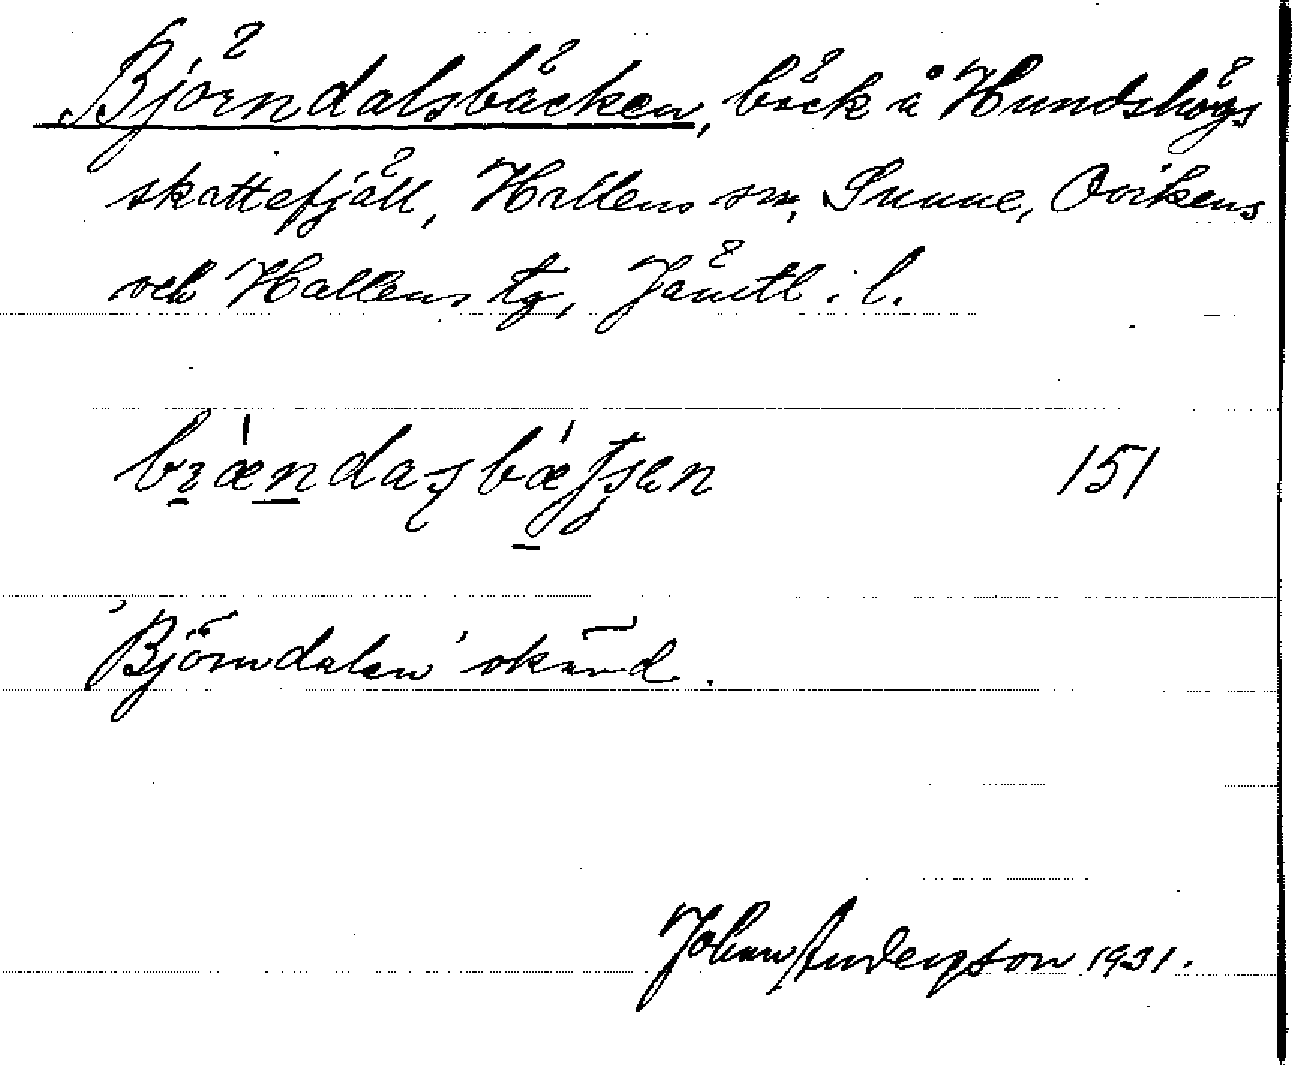 Björndalsbäcken, bäck å Hundshögs
skattefjäll, Hallens sn, Sunne, Ovikens
och Hallens tg, Jämtl. l.
151
'Björndalen' okänd.
Johan Anderson 1931.